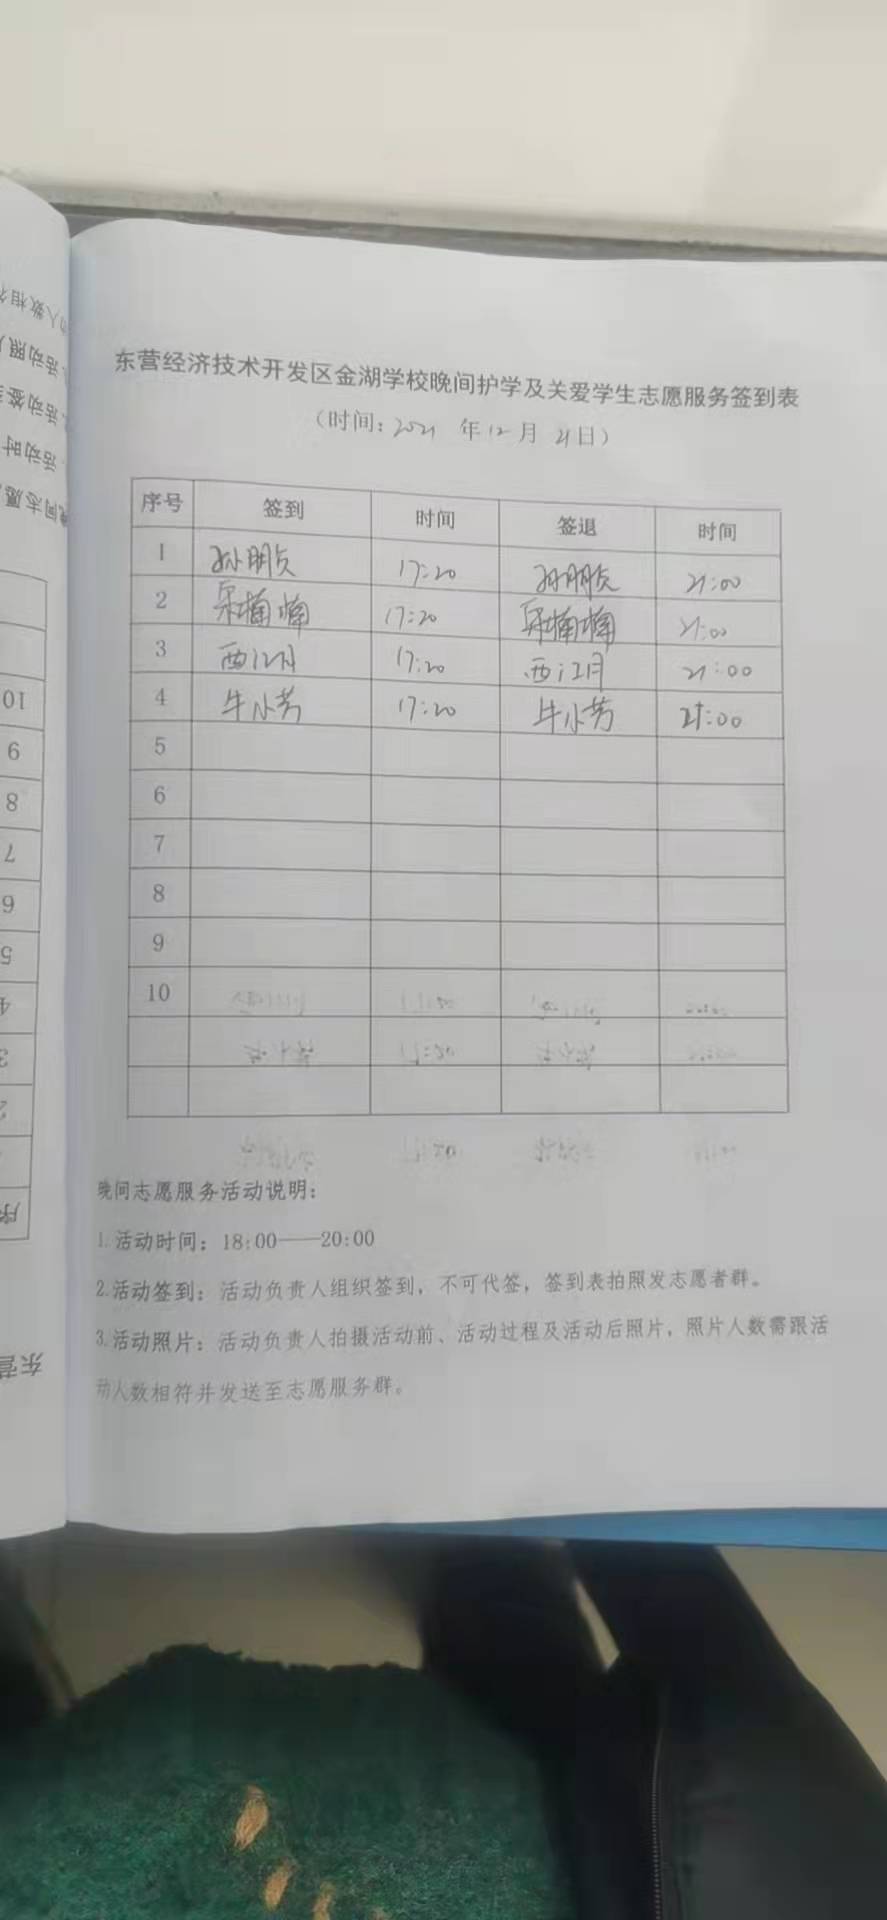 东营经济技术开发区金湖学校晚间护学及关爱学生志愿服务签到表
（时间：2021 年12月 21日）
序号 签到 时间 签退 时间
1 孙朋贞 17:20 孙朋贞 21:00
2 楠楠 17:20 楠楠 21:00
3 西江月 17:20 西江月 21:00
4 牛小芳 17:20 牛小芳 21:00
5
6
7
8
9
10
晚间志愿服务活动说明：
1.活动时间：18:00——20:00
2.活动签到：活动负责人组织签到，不可代签，签到表拍照发志愿者群。
3.活动照片：活动负责人拍摄活动前、活动过程及活动后照片，照片人数需跟活
动人数相符并发送至志愿服务群。